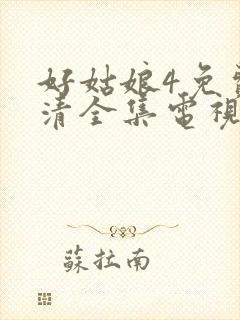 好姑娘4免
清全集電視
蘇拉南